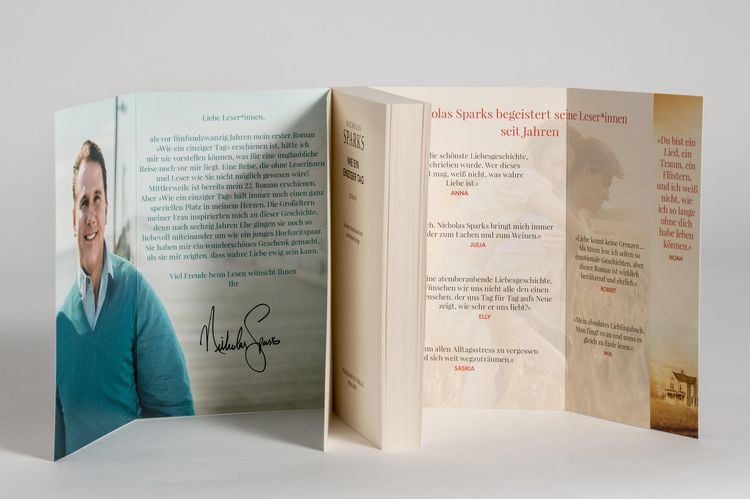 Liebe Leser*innen,
als vor fünfundzwanzig Jahren mein erster Roman
»Wie ein einziger Tag« erschienen ist, hätte ich
mir nie vorstellen können, was für eine unglaubliche
Reise noch vor mir liegt. Eine Reise, die ohne Leserinnen
und Leser wie Sie nicht möglich gewesen wäre!
Mittlerweile ist bereits mein 22. Roman erschienen.
Aber »Wie ein einziger Tag« hält immer noch einen ganz
speziellen Platz in meinem Herzen. Die Großeltern
meiner Frau inspirierten mich zu dieser Geschichte,
denn nach sechzig Jahren Ehe gingen sie noch so
liebevoll miteinander um wie ein junges Hochzeitspaar.
Sie haben mir ein wunderschönes Geschenk gemacht,
als sie mir zeigten, dass wahre Liebe ewig sein kann.
Viel Freude beim Lesen wünscht Ihnen
Ihr
Nicholas Sparks
NICHOLAS
SPARKS
WIE EIN
EINZIGER TAG
ROMAN
olas Sparks begeistert seine Leser*innen
seit Jahren
die schönste Liebesgeschichte,
chrieben wurde. Wer dieses
t mag, weiß nicht, was wahre
Liebe ist.«
ANNA
ch. Nicholas Sparks bringt mich immer
der zum Lachen und zum Weinen.«
JULIA
eine atemberaubende Liebesgeschichte.
ünschen wir uns nicht alle den einen
enschen, der uns Tag für Tag aufs Neue
zeigt, wie sehr er uns liebt?«
ELLY
um allen Alltagsstress zu vergessen
d sich weit wegzuträumen.«
SASKIA
»Liebe kennt keine Grenzen ...
Als Mann lese ich selten so
emotionale Geschichten, aber
dieser Roman ist wirklich
berührend und ehrlich.«
ROBERT
»Mein absolutes Lieblingsbuch.
Man fängt es an und muss es
gleich zu Ende lesen.«
MIA
»Du bist ein
Lied, ein
Traum, ein
Flüstern,
und ich weiß
nicht, wie
ich so lange
ohne dich
habe leben
können.«
NOAH